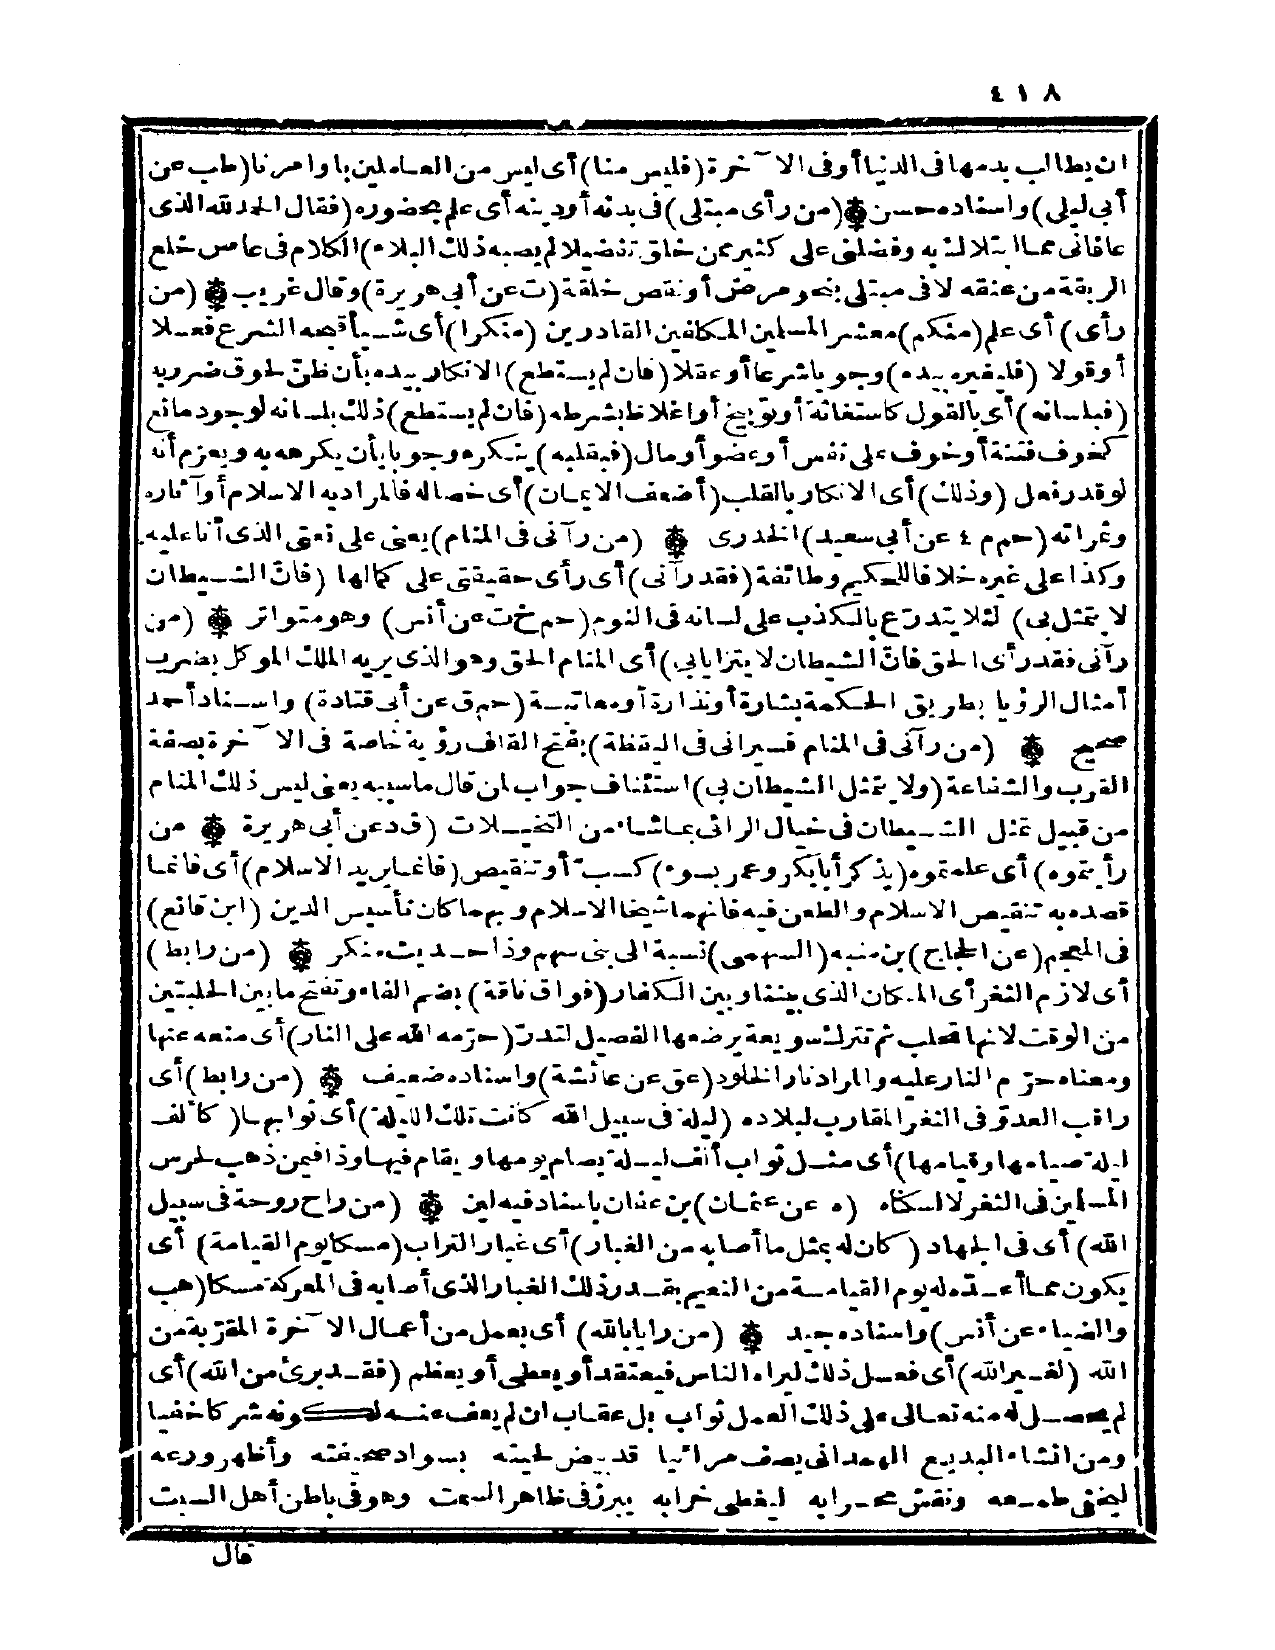 ٤١٨
ان يطالب بدمها فى الدنيا أو فى الآخرة (فليس منا) أى ليس من العاملين باوامرنا (طب عن
أبى ليلى) واسناده حسن ۞ (من رأى مبتلى) فى بدنه أو دينه أى علم بحضوره (فقال الحمد لله الذى
عافانى مما ابتلاك به وفضلنى على كثير ممن خلق تفضيلا لم يصبه ذلك البلاء) الكلام فى عاص خلع
الربقة من عنقه لا فى مبتلى بنحو مرض أو نقص خلقة (ت عن أبى هريرة) وقال غريب ۞ (من
رأى) أى علم (منكم) معشر المسلمين المكلفين القادرين (منكرا) أى شيأ قبحه الشرع فعلا
أو قولا (فليغيره بيده) وجوبا شرعا أو عقلا (فان لم يستطع) الانكار بيده بأن ظنّ لحوق ضرر به
(فبلسانه) أى بالقول كاستغاثة أو توبيخ أو اغلاظ بشرطه (فان لم يستطع) ذلك بلسانه لوجود مانع
كخوف فتنة أو خوف على نفس أو عضو أو مال (فبقلبه) ينكره وجوبا بأن يكرهه به ويعزم أنه
لو قدر فعل (وذلك) أى الانكار بالقلب (أضعف الايمان) أى خصاله فالمراد به الاسلام أو آثاره
وثمراته (حم م ٤ عن أبى سعيد) الخدرى ۞ (من رآنى فى المنام) يعنى على نعتى الذى أنا عليه
وكذا على غيره خلافا للحكيم وطائفة (فقد رآنى) أى رأى حقيقتى على كمالها (فانّ الشيطان
لا يتمثل بى) لئلا يتدرّع بالكذب على لسانه فى النوم (حم خ ت عن أنس) وهو متواتر ۞ (من
رآنى فقد رأى الحق فانّ الشيطان لا يتزايا بى) أى المنام الحق وهو الذى يريه الملك الموكل بضرب
أمثال الرؤيا بطريق الحكمة بشارة أو نذارة أو معاتبة (حم ق عن أبى قتادة) واسناد أحمد
صحيح ۞ (من رآنى فى المنام فسيرانى فى اليقظة) بفتح القاف رؤية خاصة فى الآخرة بصفة
القرب والشفاعة (ولا يتمثل الشيطان بى) استئناف جواب لمن قال ما سببه يعنى ليس ذلك المنام
من قبيل تمثل الشيطان فى خيال الرائى بما شاء من التخيلات (ق د عن أبى هريرة ۞ من
رأيتموه) أى علمتموه (يذكر أبا بكر وعمر بسوء) كسبّ أو تنقيص (فانما يريد الاسلام) أى فانما
قصده به تنقيص الاسلام والطعن فيه فانهما شيخا الاسلام وبهما كان تأسيس الدين (ابن قانع)
فى المعجم (عن الحجاج) بن منبه (السهمى) نسبة الى بنى سهم وذا حديث منكر ۞ (من رابط)
أى لازم الثغر أى المكان الذى بيننا وبين الكفار (فواق ناقة) بضم الفاء وتفتح ما بين الحلبتين
من الوقت لانها تحلب ثم تترك سويعة يرضعها الفصيل لتدرّ (حرّمه الله على النار) أى منعه عنها
ومعناه حرّم النار عليه والمراد نار الخلود (عق عن عائشة) واسناده ضعيف ۞ (من رابط) أى
راقب العدوّ فى الثغر المقارب لبلاده (ليلة فى سبيل الله كانت تلك الليلة) أى ثوابها (كألف
ليلة صيامها وقيامها) أى مثل ثواب ألف ليلة يصام يومها ويقام فيها وذا فيمن ذهب لحرس
المسلمين فى الثغر لا لسكاه (ه عن عثمان) بن عفان باسناد فيه لين ۞ (من راح روحة فى سبيل
الله) أى فى الجهاد (كان له بمثل ما أصابه من الغبار) أى غبار التراب (مسكا يوم القيامة) أى
يكون مما أعدّ له يوم القيامة من النعيم بقدر ذلك الغبار الذى أصابه فى المعركة مسكا (هب
والضياء عن أنس) واسناده جيد ۞ (من رايا بالله) أى بعمل من أعمال الآخرة المقرّبة من
الله (لغير الله) أى فعل ذلك ليراه الناس فيعتقد أو يعطى أو يعظم (فقد برئ من الله) أى
لم يحصل له منه تعالى على ذلك العمل ثواب بل عقاب ان لم يعف عنه لكونه شركا خفيا
ومن انشاء البديع الهمدانى يصف مرائيا قد بيض لحيته بسواد صحيفته وأظهر ورعه
ليخفى طمعه ونقش محرابه ليغطى خرابه يبرز فى ظاهر السمت وهو فى باطن أهل السبت
قال